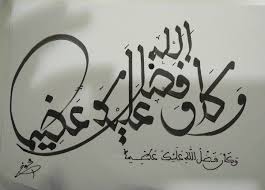 وكان فضل الله عليك عظيما
وكان فضل الله عليك عظيما